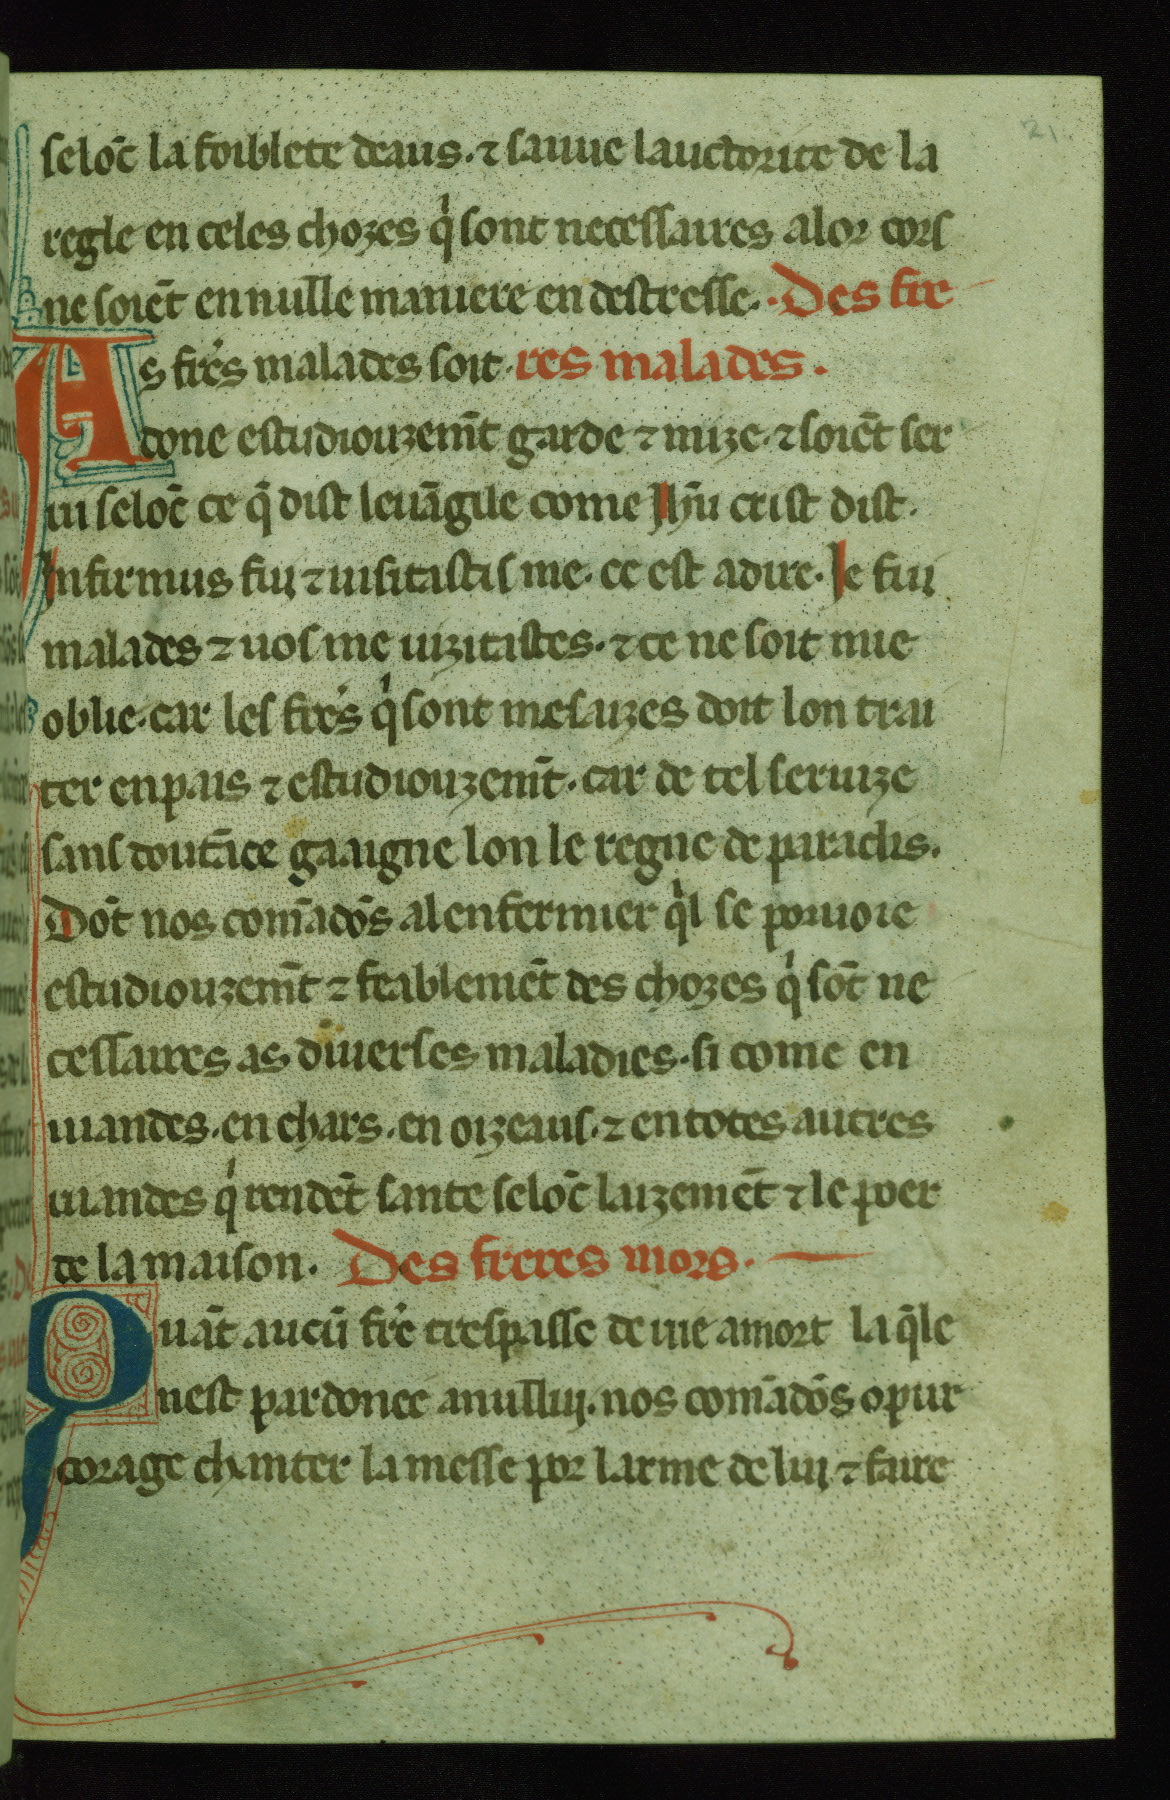 21
seloc̄ la foiblete deaus. ⁊ sauue lauctorite de la
regle en celes chozes q̇ sont necessaires a lor cors
ne soiēt en nulle maniere en destresse. Des fre
As frēs malades soit res malades.
done estudiouzem̄t garde ⁊ mize. ⁊ soiēt ser
ui seloc̄ ce q̄ dist leuāgile come Ihū crist dist.
Infirmus fui ⁊ uisitastis me. ce est a dire. Je fui
malades ⁊ uos me uizitastes. ⁊ ce ne soit mie
oblie. car les frēs q̇ sont mesaizes doit lon trai
ter en pais ⁊ estudiouzem̄t. car de tel seruize
sans doutāce gaaigne lon le regne de paradis.
Dōt nos com̄adōs al enfermier q̇l se poruoie
estudiouzem̄t ⁊ feablemēt des chozes q̇ sōt ne
cessaires as diuerses maladies. si come en
uiandes. en chars. en oizeaus. ⁊ en totes autres
uiandes q̇ rendēt sante seloc̄ laizemēt ⁊ le poer
de la maison. Des freres mors.
Quāt aucū frē trespasse de uie a mort la q̄le
nest pardonee a nullui. nos com̄adōs o pur
corage chanter la messe por larme de lui ⁊ faire